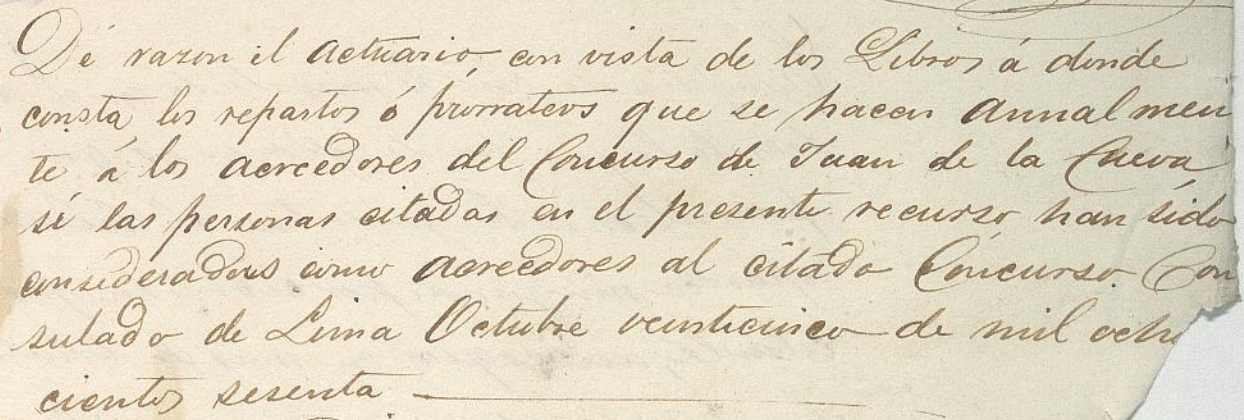 Dé razon el actuario, con vista de los Libros á donde
consta los repartos ó prorrateos que se hacen annalmen
te á los acreedores del Concurso de Juan de la Cueva
sí las personas citadas en el presente recurso han sido
consideradas como acreedores al citado Concurso. Con
sulado de Lima Octubre veinticinco de mil ocho
cientos sesenta